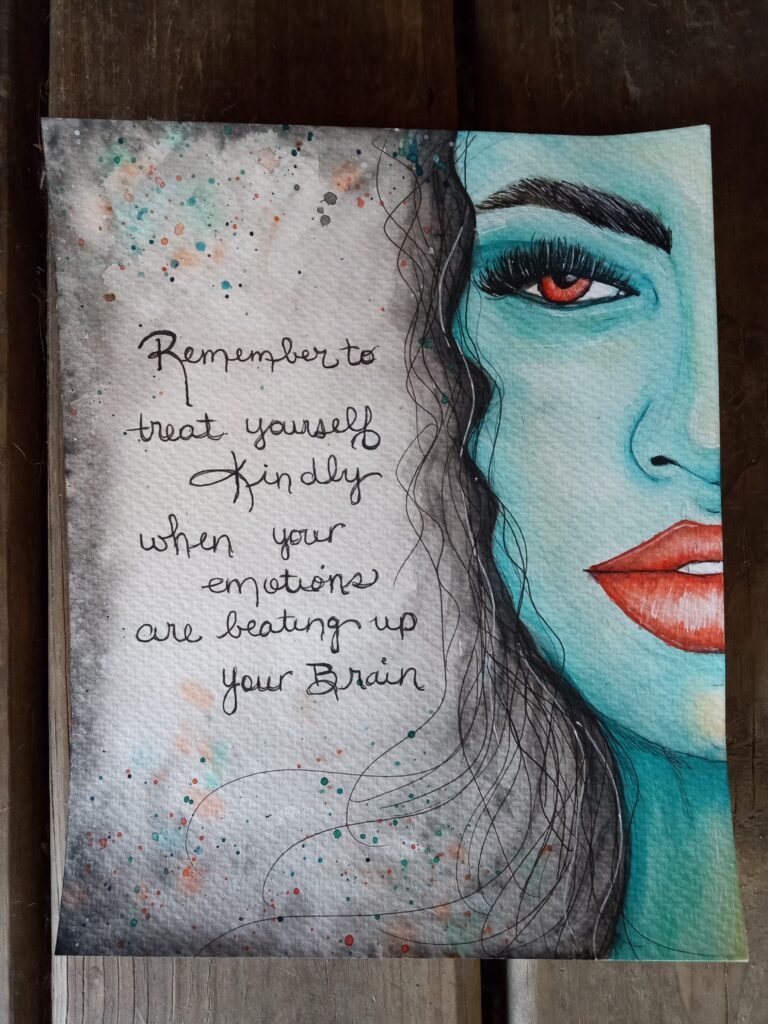 Remember to
treat yourself
Kindly
when your
emotions
are beating up
your Brain